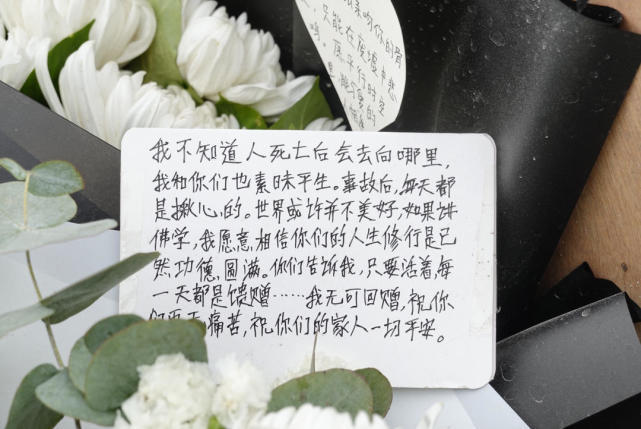 亲吻你的骨
只能在废墟中悲
鸣。愿平行时空
里,能
我不知道人死亡后会去向哪里,
我和你们也素昧平生。事故后,每天都
是揪心的。世界或许并不美好,如果讲
佛学,我愿意相信你们的人生修行是已
然功德圆满。你们告诉我,只要活着,每
一天都是馈赠……我无可回赠,祝你
们再无痛苦,祝你们的家人一切平安。